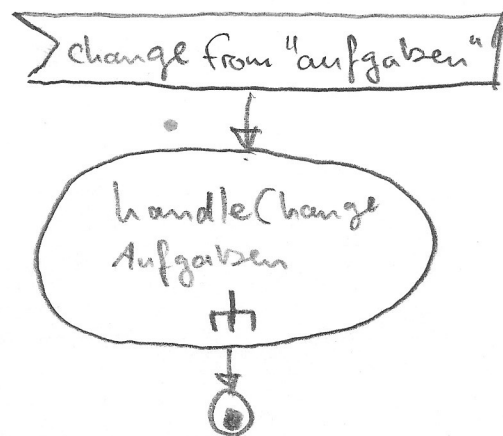 change from "aufgaben"
handleChange
Aufgaben